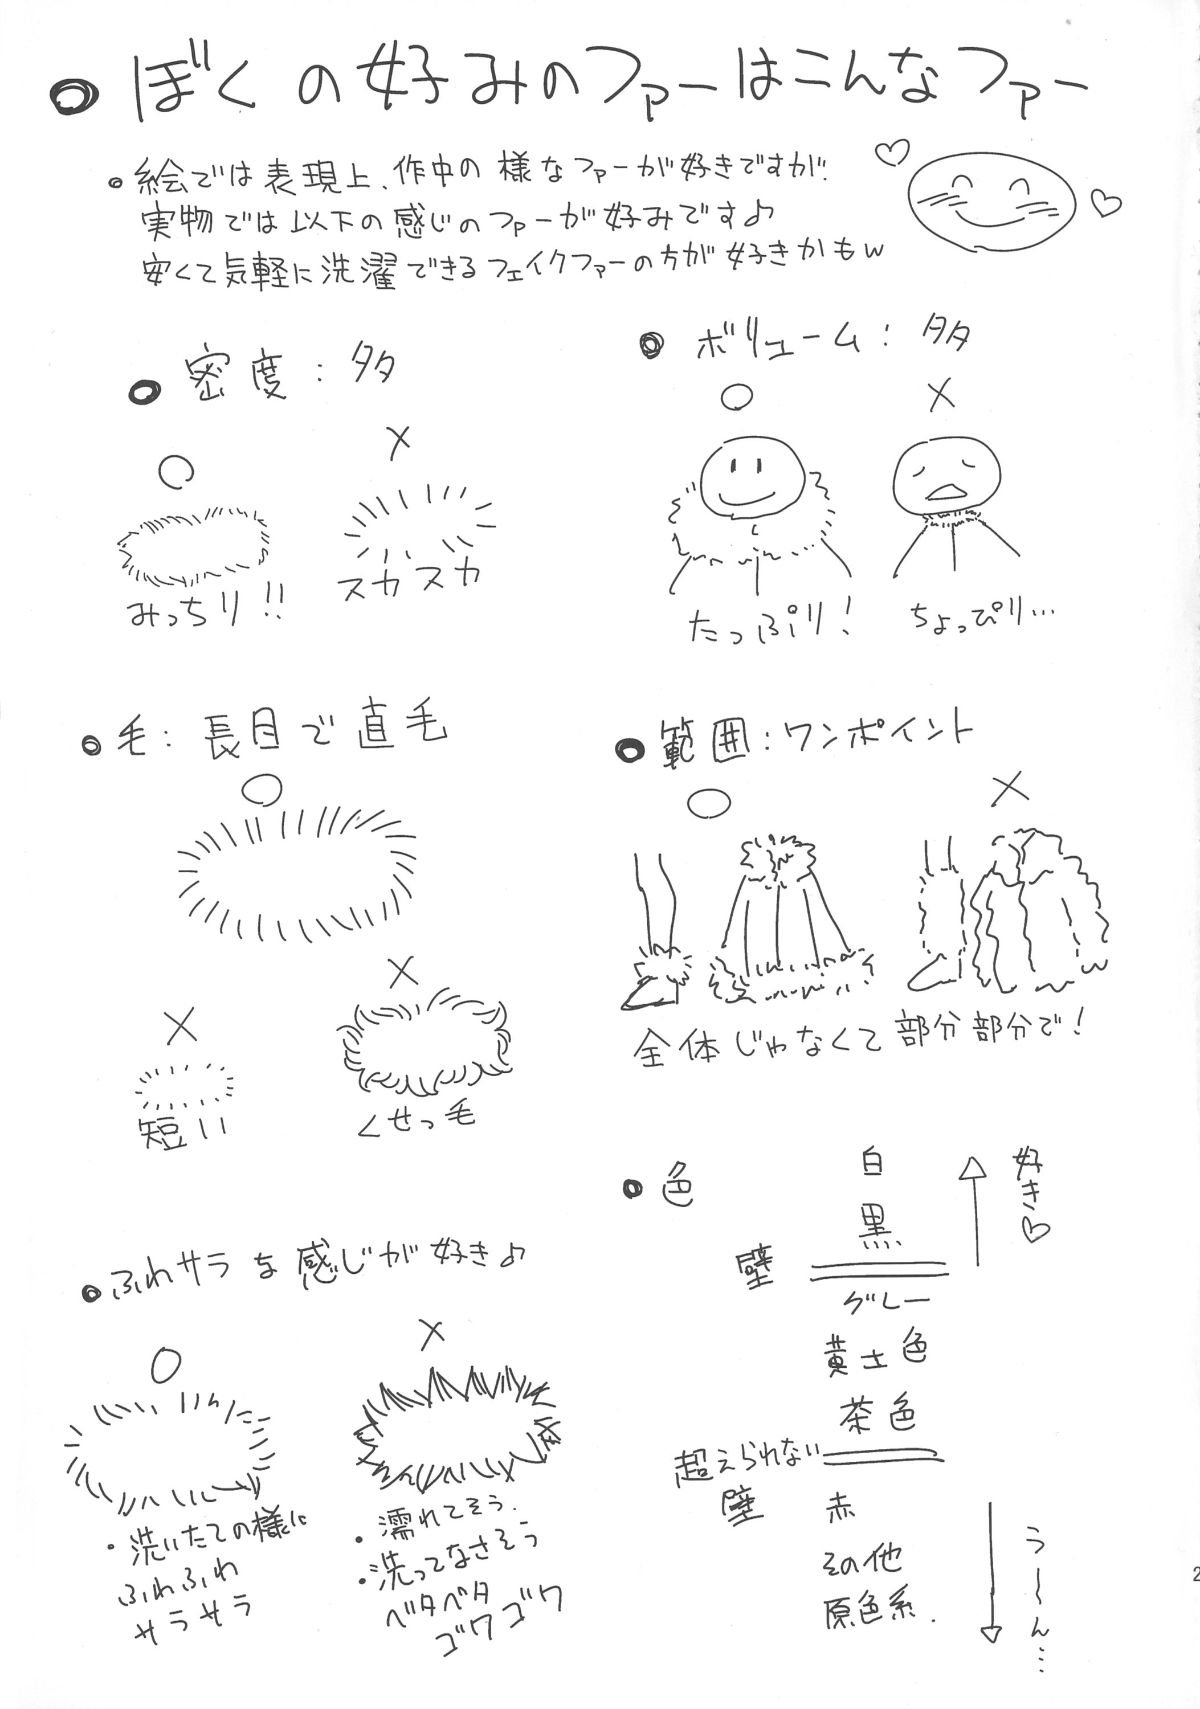 ぼくの好みのファーはこんなファー
絵では表現上、作中の様なファーが好きですが
実物では以下の感じのファーが好みです♪
安くて気軽に洗濯できるフェイクファーの方が好きかもw
密度:多
○
×
みっちり!!
スカスカ
ボリューム:多
○
×
たっぷり!
ちょっぴり…
毛:長目で直毛
○
×
×
短い
くせっ毛
範囲:ワンポイント
○
×
全体じゃなくて部分部分で!
ふわサラな感じが好き♪
○
×
・洗いたての様に
ふわふわ
サラサラ
・濡れてそう.
・洗ってなさそう
ベタベタ
ゴワゴワ
色
白
黒
好き♡
壁
グレー
黄土色
茶色
超えられない
壁
赤
その他
原色系.
う〜ん…
2